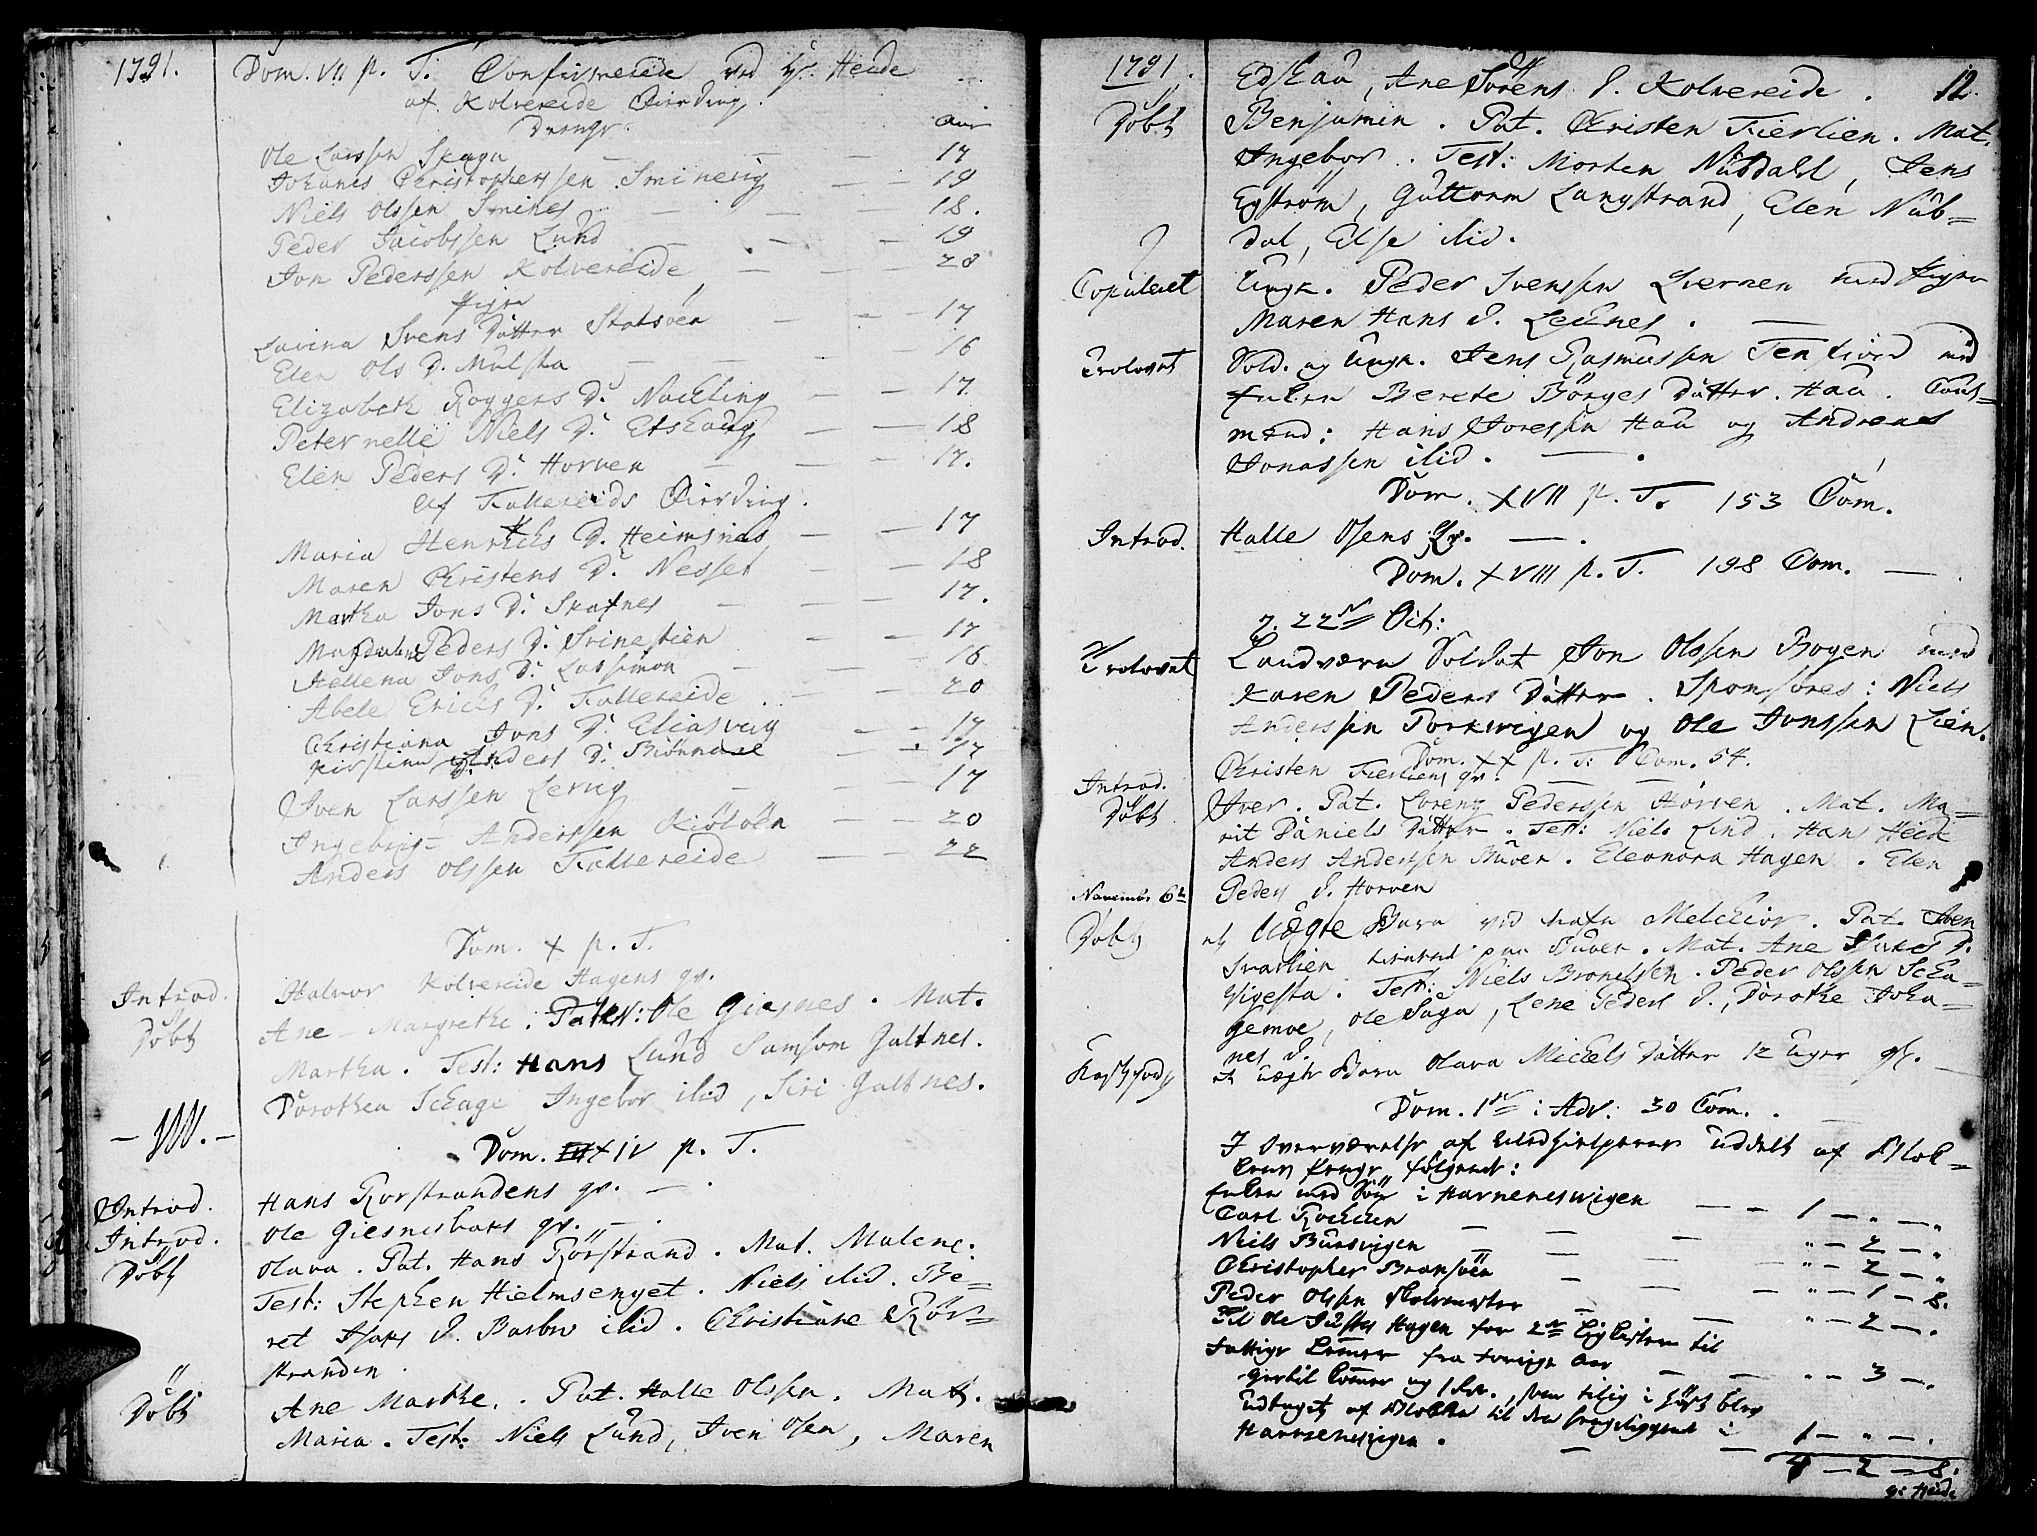 1791.
Dom. VII p. T. Confirmerede ved Hr. Heide
af Kolvereide Fierding.
Drenge. Aar
Ole Larssen Skaga — — — 17
Johanes Christophersen Smineviig — — 19
Niels Olssen Smines — — — 18.
Peder Jacobssen Lund — — — 19
Jon Pederssen Kolvereide — — 20
Piger
Lavina Svens Datter Statsöen — — — 17
Elen Ols D. Mulsta — — — 16
Elizabeth Roggers D. Nachling — — 17
Peternelle Niels D. Etshaug — — 18
Elen Peders D. Horven — — 17.
Af Foldereids Fierding.
Maria Henrichs D. Heimsnes — — 17
Maren Christens D. Nesset — — 18
Martha Jons D. Skafnes — — — 17.
Magdalene Peders D. Svinestien — — 17
Hellena Jons D. Lassemoa — 16
Abele Erichs D. Follereide — — 20
Christiana Jons D. Eliasviig — — 17
Kirstina Anders D. Brönmoe — 17
Iven Larssen Lerviig — — 17
Ingebrigt Anderssen Kiölsöen — — 20
Anders Olssen Follereide — — 22
Dom. X p. T.
Introd. Halvor Kolvereide Hagens qv.
Döbt Ane Margrethe. Pater: Ole Giesnes. Mat.
Martha. Test: Hans Lund Samson Galtnes.
Dorothea Schage Ingebor ibid, Siri Galtnes.
Dom. XIV p. T.
Introd. Hans Rorstrandens qv. — .
Introd. Ole Giesnesbaks qv. — .
Döbt Olava. Pat. Hans Rörstrand. Mat. Malene.
Test: Stephen Hielmsenget. Niels ibid. Be-
ret Isaks D. Barbro ibid. Christiane Rör-
stranden.
Döbt Ane Marthe. Pat. Halle Olssen. Mat.
Maria. Test: Niels Lund, Iven Osen, Maren
1791. 12.
Edshau, Ane Sörens D. Kolvereide.
Döbt Benjamin. Pat. Christen Fierlien. Mat.
Ingebor. Test: Morten Nubdahl, Jens
Egström, Guttorm Langstrand, Elen Nub-
dal, Else ibid.
Copuleret Ungk. Peder Svenssen Svernen med Pigen
Maren Hans D. Leknes. —
Trolovet Sold. og Ungk. Jens Rasmussen Tenfiord med
Enken Berete Börges Datter. Hau. Caus-
mænd: Hans Joressen Hau og Andreas
Jonassen ibid. — .
Dom. XVII p. T. 153 Com.
Introd. Halle Osens qv. — .
Dom. XVIII p. T. 198 Com. —
D. 22de Oct:
Trolovet Landværn Soldat Jon Olssen Bogen med
Karen Peders Datter. Sponsores: Niels
Anderssen Torkwigen og Ole Jonssen Lien.
Dom. XX p. T: Com. 54.
Introd. Christen Fierliens qv. — —
Döbt Iver. Pat. Lorenz Pederssen Horven. Mat. Ma-
rit Daniels Datter. Test: Niels Lind. Han Heide
Anders Anderssen Buven. Eleonora Hagen. Elen
Peders D. Horven
November 6te
Döbt et Uægte Barn ved nafn Melchior. Pat. Iven
Svartlien paa Buver. Mat. Ane Isaks D.
Test: Niels Bronelssen. Peder Olssen Scha-
gemoe, Ole Saga, Lene Peders D., Dorothe Joha-
nes D.
et uægte Barn Olava Michels Datter 12 Uger gl.
Dom. 1ste i Adv: 30 Com. .
I Overværelse af Medhielperne uddelt af Blok-
kens Penge følgende:
Enken med Sön i Harneneswigen — — 1 — „ — „
Carl Rochken — — „ — 2 — „
Niels Bursvigen — — „ — 2 — „
Christopher Bransöen — — — „ — 1 — 8.
Peder Olssen Skolemester — — „ — 2 — .
Til Ole Justes Hagen for 2de Liigkister til
Fattige Lemer fra forrige Aar — — „ — 3 — .
udtaget af Blokken til den sengeliggende i
Harneneswigen. — — 1 — „ — .
4 — 2 — 8.
G: Heide